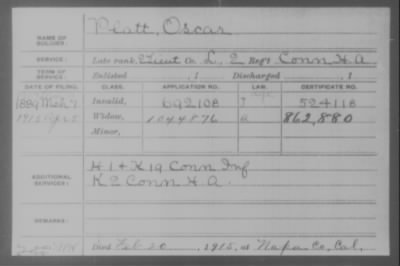 NAME OF SOLDIER: Platt, Oscar
SERVICE: Late rank, 2 Lieut Co. L, 2 Reg't Conn H.A.
TERM OF SERVICE: Enlisted , 1 Discharged , 1
DATE OF FILING. CLASS. APPLICATION NO. LAW. CERTIFICATE NO.
1889 Mch 7 Invalid, 692108 524118
1915 Widow, 1044876 862,880
Minor,
ADDITIONAL SERVICES: H 1 & K 19 Conn Inf
K 2 Conn H.A.
REMARKS:
Died Feb 20, 1915, at Napa Co, Cal,